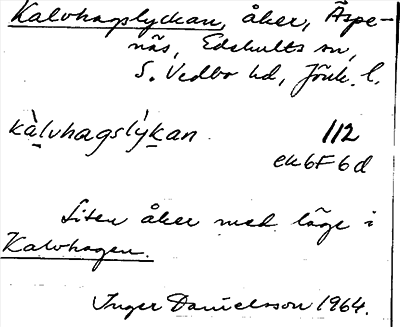 Kalvhagslyckan, åker, Äspe-
näs, Edshults sn,
S. Vedbo hd, Jönk. l.
kàlvhagslýkan 112
ek6F6d
Liten åker med läge i
Kalvhagen.
Inger Danielsson 1964.